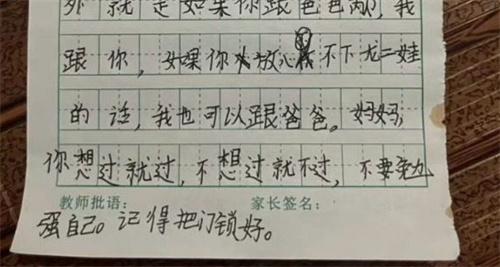 外就是如果你跟爸爸离，我
跟你，如果你放心不下龙二娃
的话，我也可以跟爸爸。妈妈，
你想过就过，不想过就不过，不要勉
教师批语： 家长签名：
强自己。记得把门锁好。